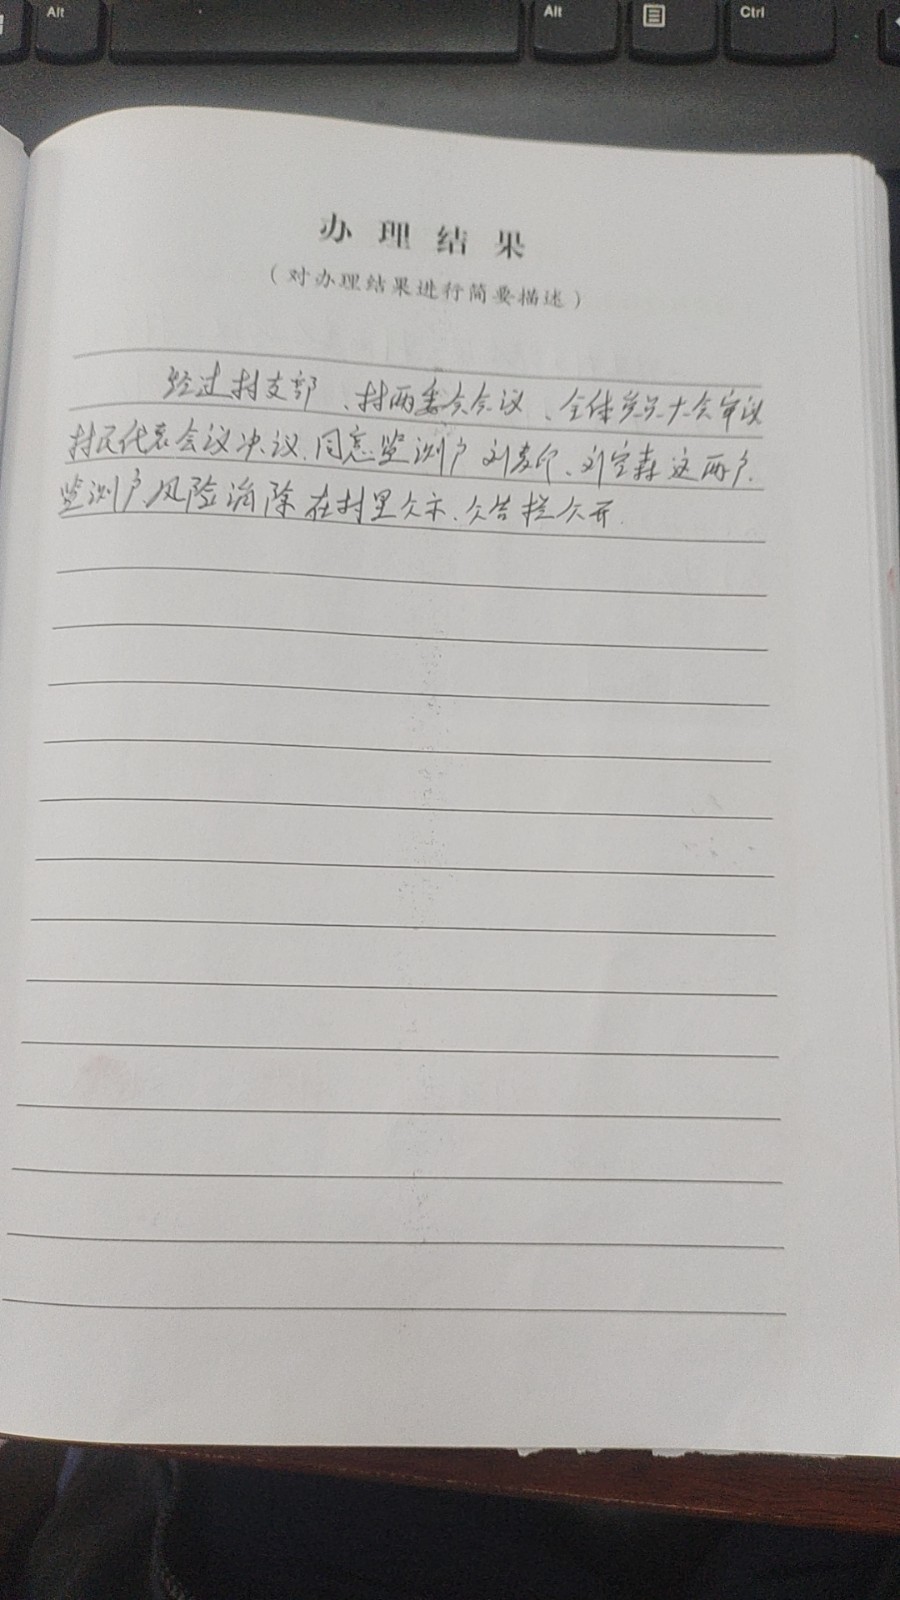 Alt
Alt
Ctrl
办理结果
（对办理结果进行简要描述）
经过村支部、村两委会会议、全体党员大会审议
村民代表会议决议、同意监测户刘、刘宝森这两户
监测户、风险消除在村里公示、公告栏公开.